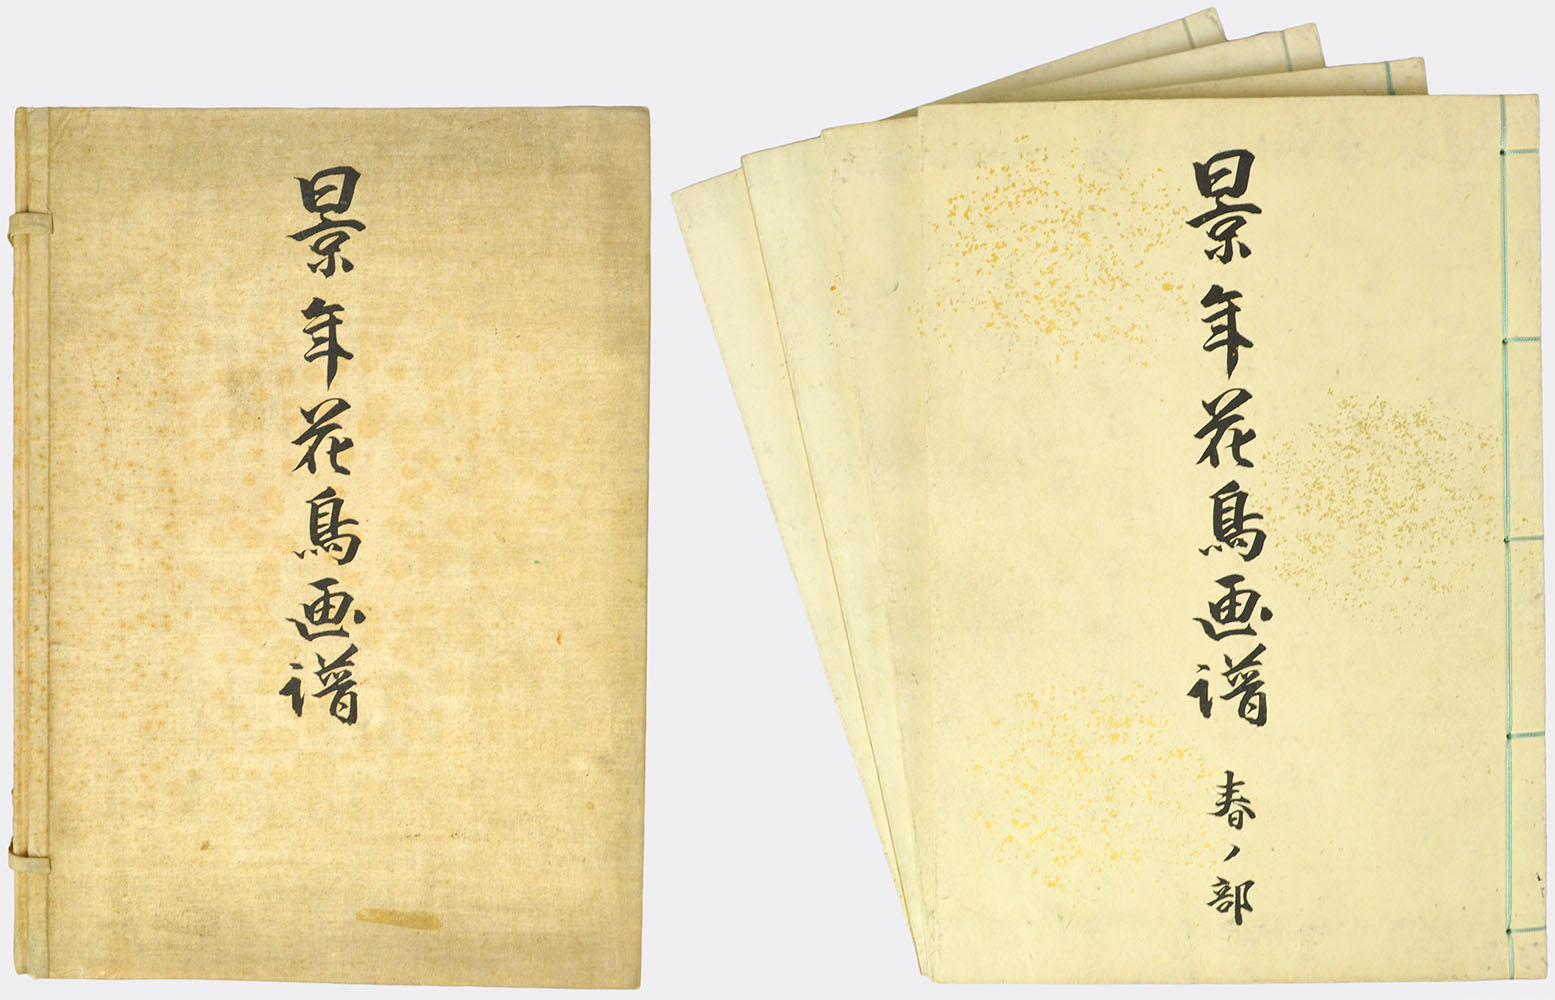 景年花鳥画譜
景年花鳥画譜
春ノ部